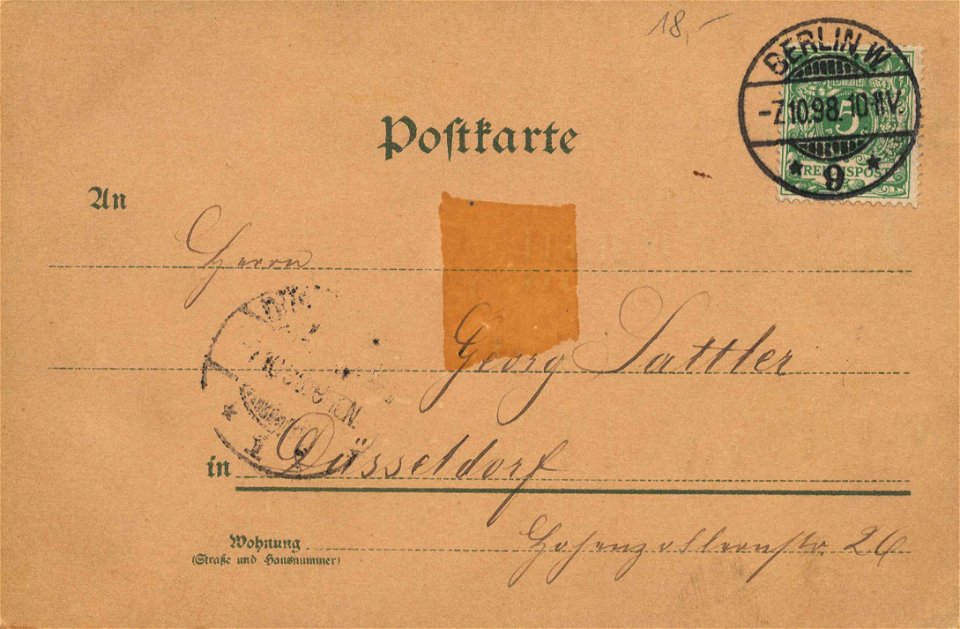 18,-
BERLIN.W.
-7.10.98.10-11V.
* 9 *
5
REICHSPOST
Postkarte
An
Herrn
Georg Sattler
in Düsseldorf
Wohnung
(Straße und Hausnummer)
Hohenzollernstr. 26